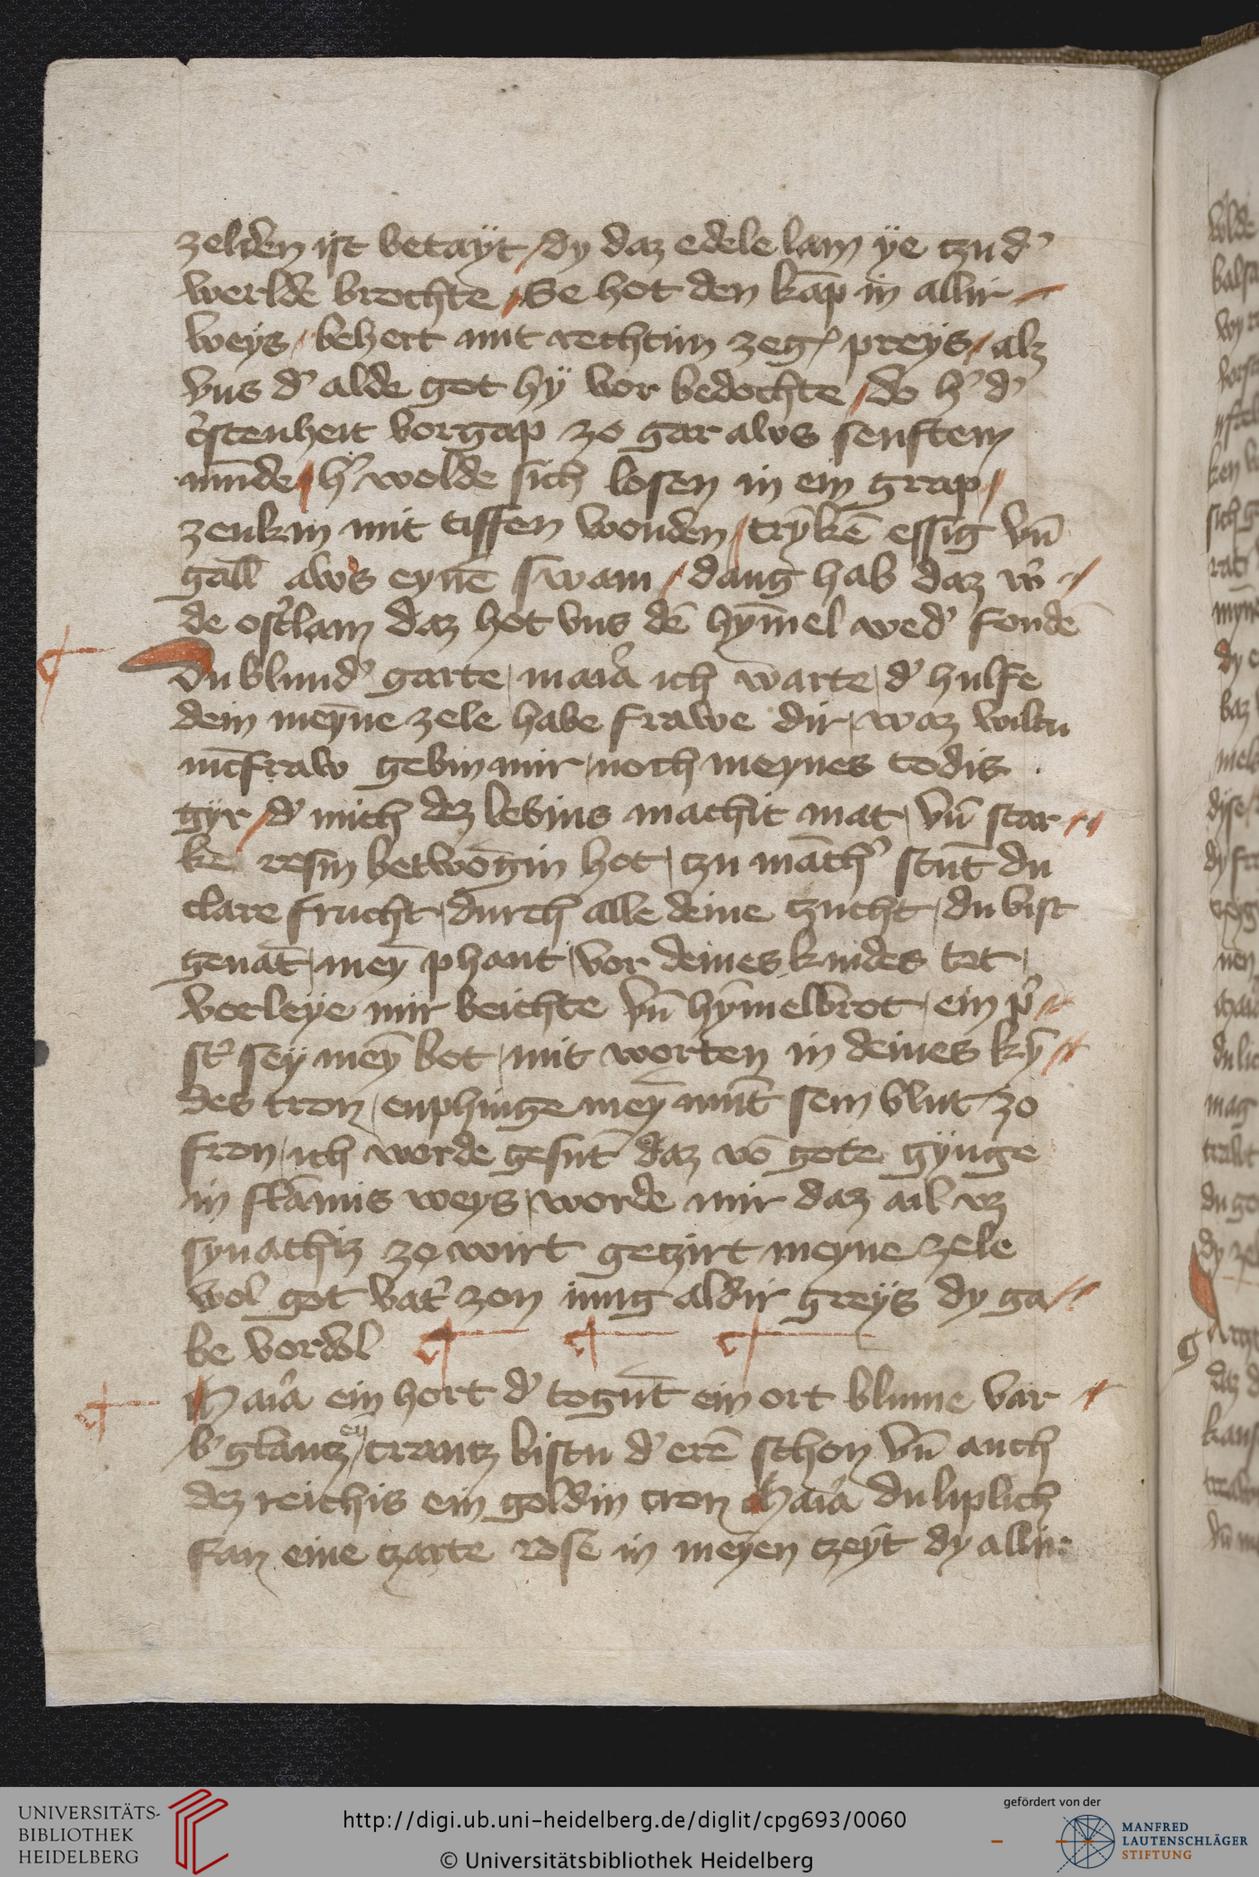 zelden ist betayt / dy daz edele lam ye tzu d'
werlde brochte / Se hot den kāp in allir
weys / behert mit rechtim zeg' preys / alz
vns d' alde got hy vor bedochte / do h' d'
c'stenheit vorgap zo gar aws senftem
mūde / h' wolde sich losen in ein grap /
zenkin mit tiffen wonden / trȳkē essig vn̄
gall aws eynē swam / dang hab daz w'
de ost'lam daz hot vns dē hym̄el wed' fondē
Du blund' garte / maia ich warte / d' hulfe
dein meyne zele habe frawe dir / waz wiltu
mēfraw gebin mir / noch meynes todis
gyr / d' mich dez lebins machit mat / vn̄ star
ke resin betwōgin hot / tzu māch' stūt du
clare frucht / durch alle deine tzucht / du bist
genāt / mey phant / vor deines kindes tot
vorleye mir beichte vn̄ hȳmelbrot / ein p'
st' sey mey bot / mit worten in deines kȳ
des tron / enphinge mey mūt sein blut zo
fron / ich worde gesūt daz vō gote gynge
in flāmis weys / worde mir daz ail vz
synachiz zo wirt getzirt meyne zele
wol got vat' zon iung aldir greys dy ga
be vorwol
Maia ein hort d' togūt ein ort blume var
b' glantz / ey crantz bistu d' erē schon vn̄ auch
dez reichis ein goldin cron Maia du liplich
fan eine tzarte rose in meyen tzeyt dy allir
UNIVERSITÄTS-
BIBLIOTHEK
HEIDELBERG
http://digi.ub.uni-heidelberg.de/diglit/cpg693/0060
© Universitätsbibliothek Heidelberg
gefördert von der
MANFRED
LAUTENSCHLÄGER
STIFTUNG